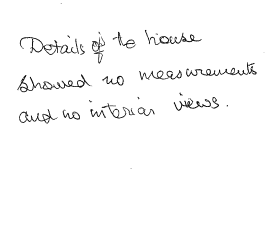 Details of the house
showed no measurements
and no interior views.